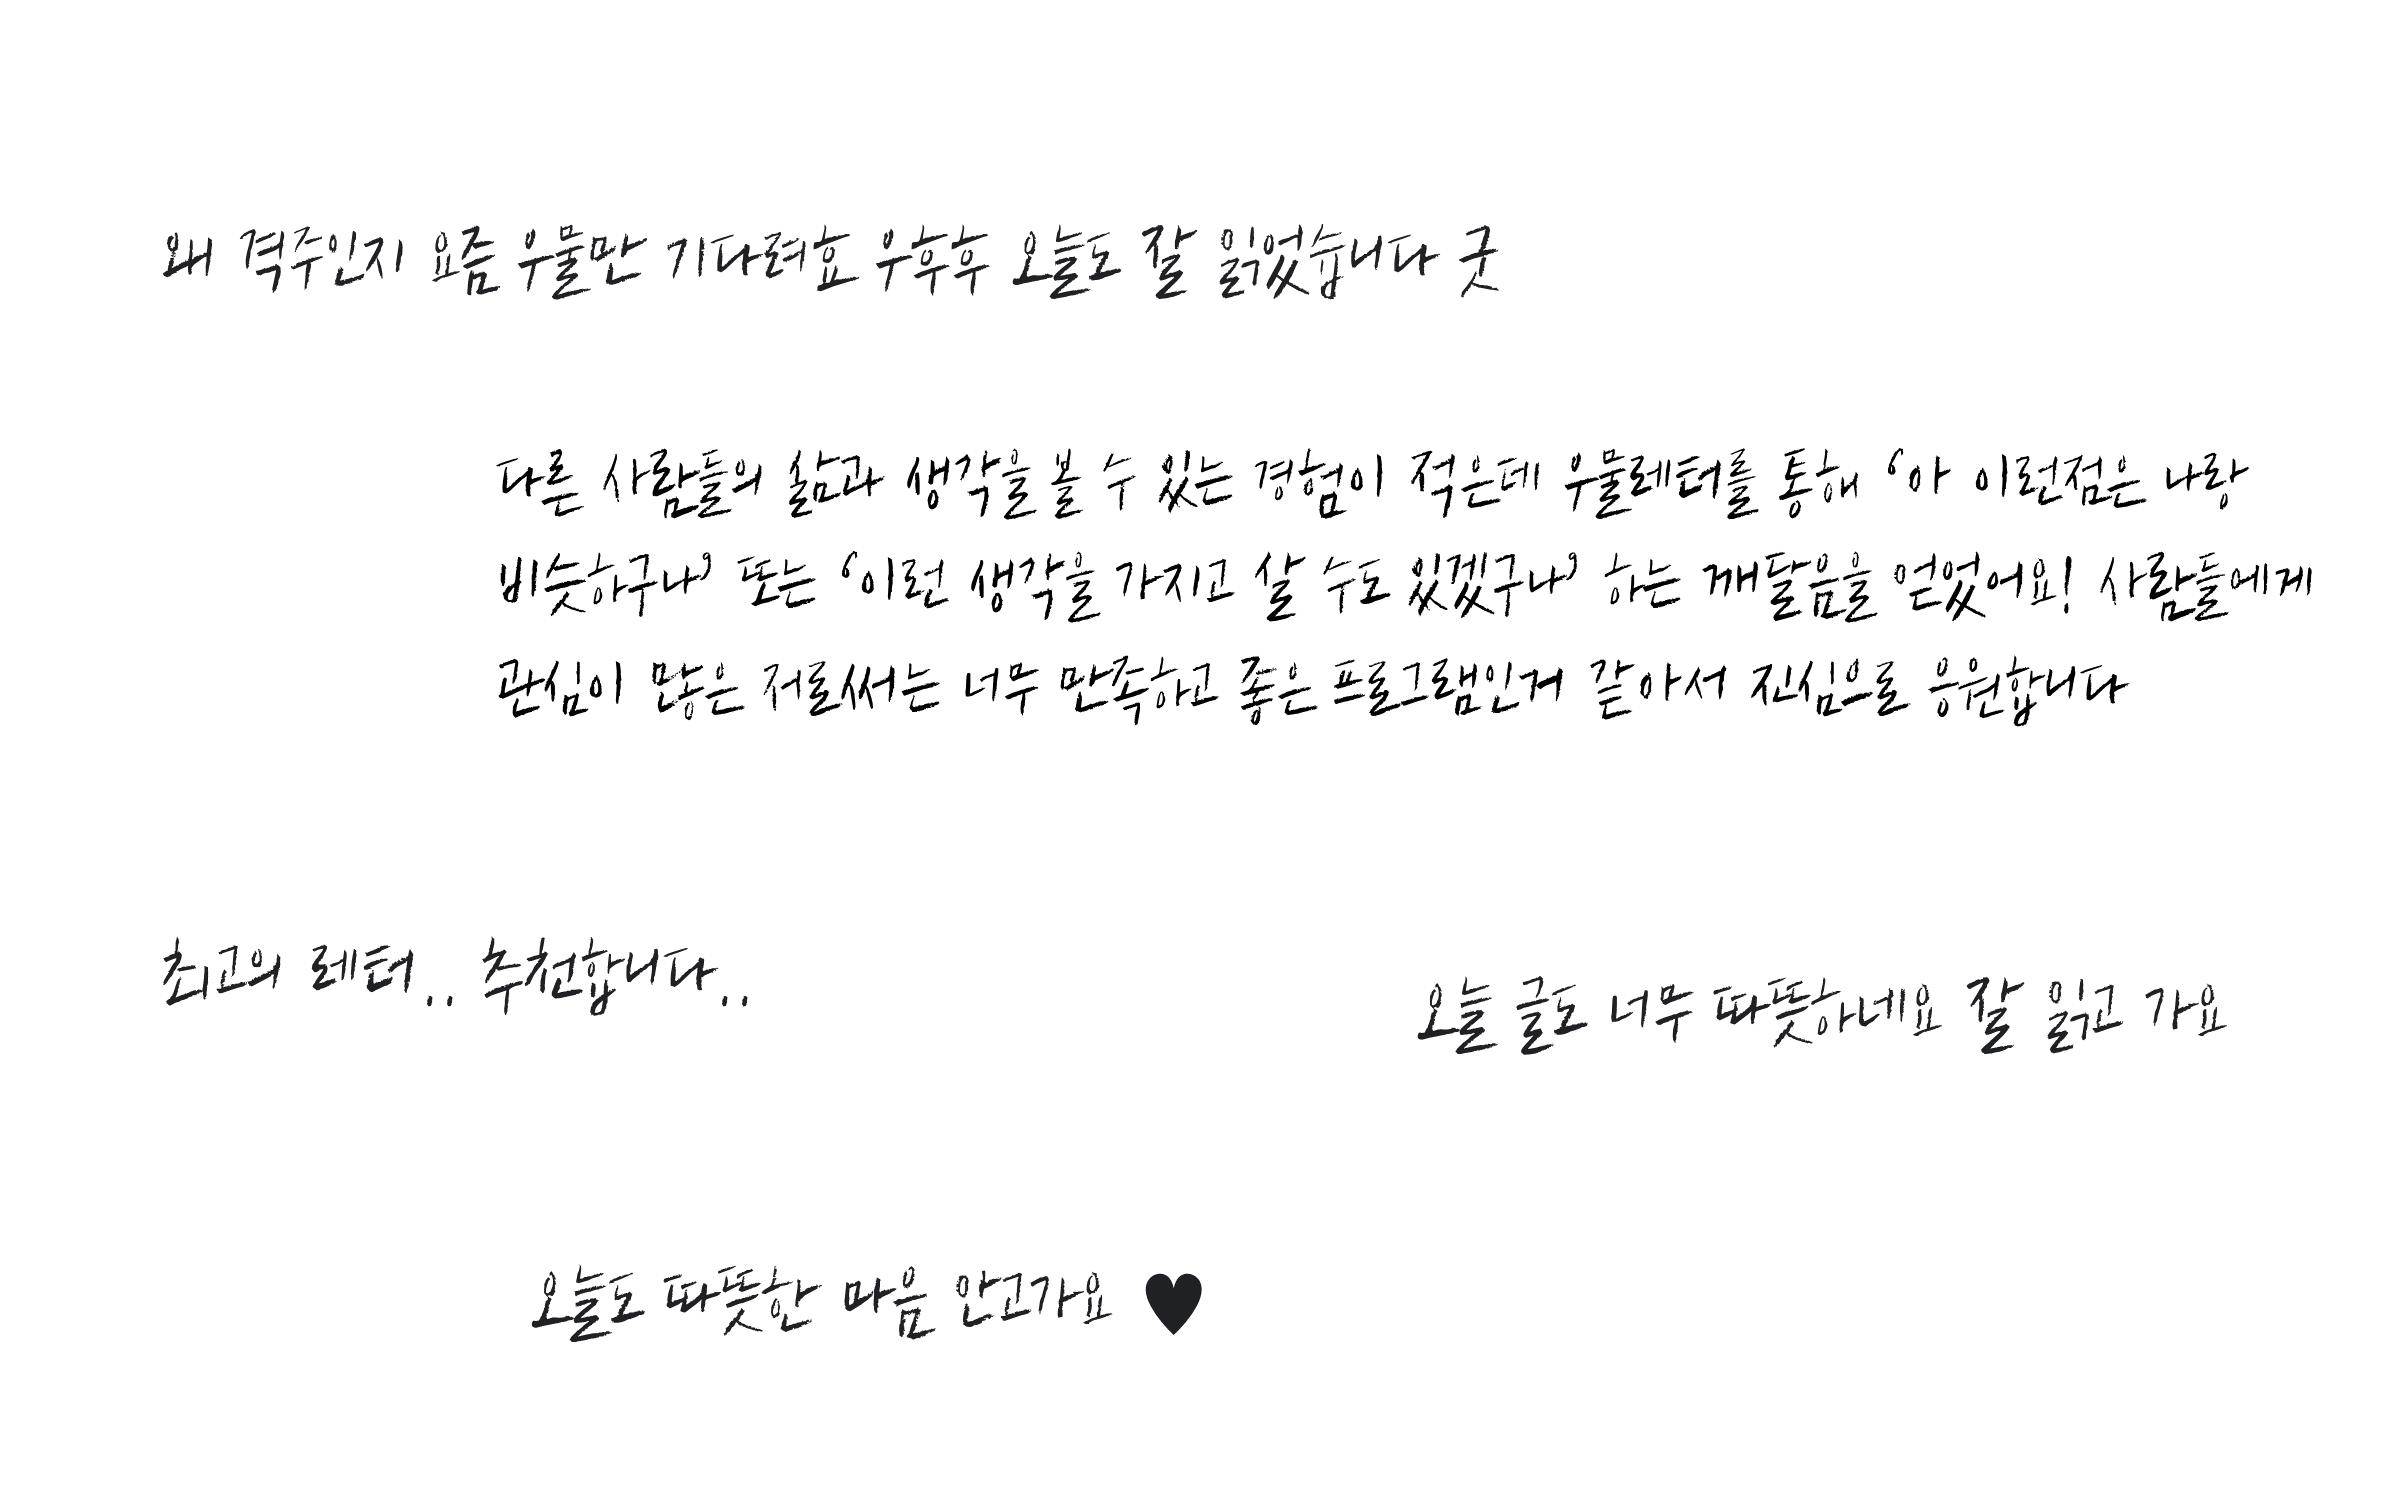 왜 격주인지 요즘 우물만 기다려효 우후후 오늘도 잘 읽었습니다 굿
다른 사람들의 삶과 생각을 볼 수 있는 경험이 적은데 우물레터를 통해 ‘아 이런점은 나랑
비슷하구나’ 또는 ‘이런 생각을 가지고 살 수도 있겠구나’ 하는 깨달음을 얻었어요! 사람들에게
관심이 많은 저로써는 너무 만족하고 좋은 프로그램인거 같아서 진심으로 응원합니다
최고의 레터.. 추천합니다..
오늘 글도 너무 따뜻하네요 잘 읽고 가요
오늘도 따뜻한 마음 안고가요 ♥